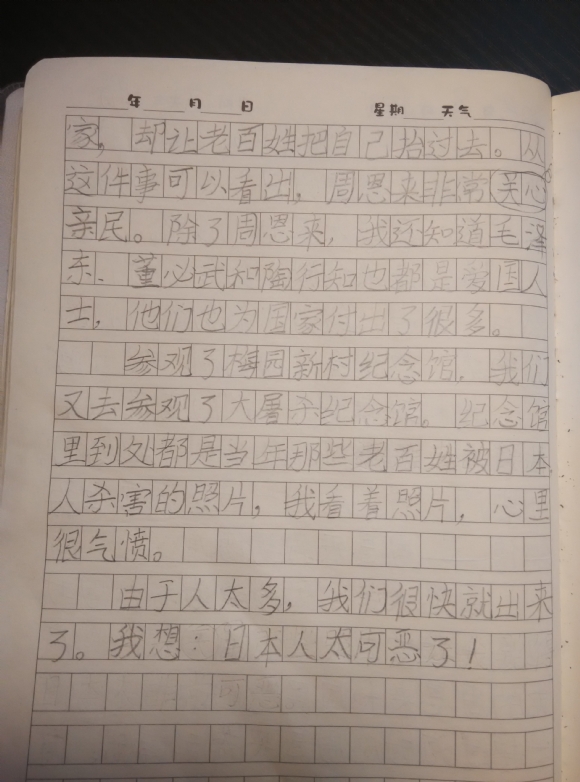 年 月 日 星期 天气
家，却让老百姓把自己抬过去。从
这件事可以看出，周恩来非常关心
亲民。除了周恩来，我还知道毛泽
东、董必武和陶行知也都是爱国人
士，他们也为国家付出了很多。
参观了梅园新村纪念馆，我们
又去参观了大屠杀纪念馆。纪念馆
里到处都是当年那些老百姓被日本
人杀害的照片，我看着照片，心里
很气愤。
由于人太多，我们很快就出来
了。我想：日本人太可恶了！